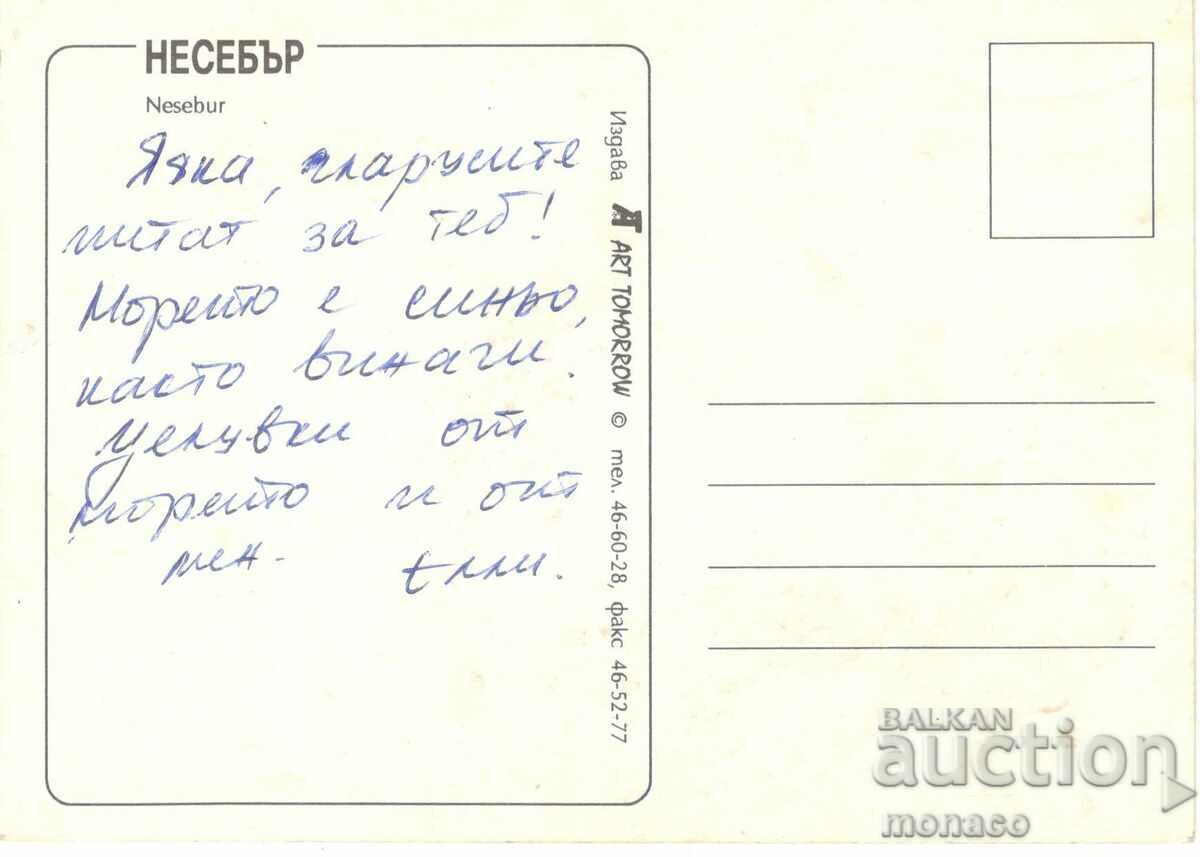 НЕСЕБЪР
Nesebur
Яна, гларусите
питат за теб!
Морето е синьо,
както винаги.
Целувки от
морето и от
мен. Елли.
Издава ART TOMORROW © тел. 46-60-28, факс 46-52-77
BALKAN
auction
monaco